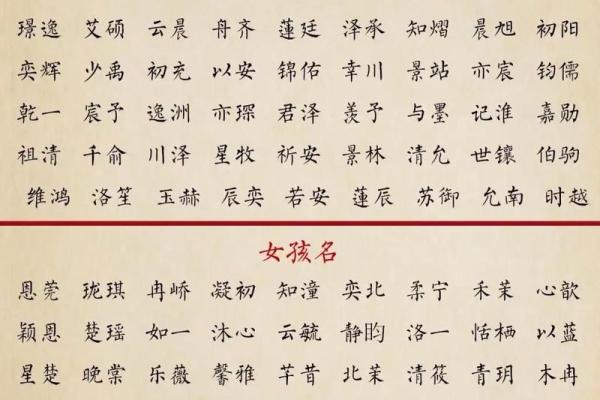 璟逸 艾硕 云晨 舟齐 蓮廷 泽承 知熠 晨旭 初阳
奕辉 少禹 初充 以安 锦佑 幸川 景站 亦宸 钧儒
乾一 宸予 逸洲 亦琛 君泽 羡予 与墨 记淮 嘉勋
祖清 千俞 川泽 星牧 祈安 景林 清允 世镶 伯驹
维鸿 洛笙 玉赫 辰奕 若安 蓮辰 苏御 允南 时越
女孩名
恩莞 珑琪 冉峤 凝初 知潼 奕北 柔宁 禾茉 心歆
颖恩 楚瑶 如一 沐心 云毓 静昀 洛一 恬栖 以蓝
星楚 晚棠 乐薇 馨雅 芊昔 北茉 清筱 青玥 木冉